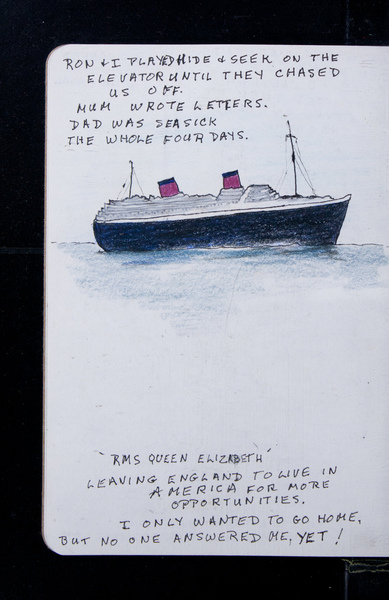 RON & I PLAYED HIDE & SEEK ON THE
ELEVATOR UNTIL THEY CHASED
US OFF.
MUM WROTE LETTERS.
DAD WAS SEASICK
THE WHOLE FOUR DAYS.
"RMS QUEEN ELIZABETH"
LEAVING ENGLAND TO LIVE IN
AMERICA FOR MORE
OPPORTUNITIES.
I ONLY WANTED TO GO HOME,
BUT NO ONE ANSWERED ME, YET!